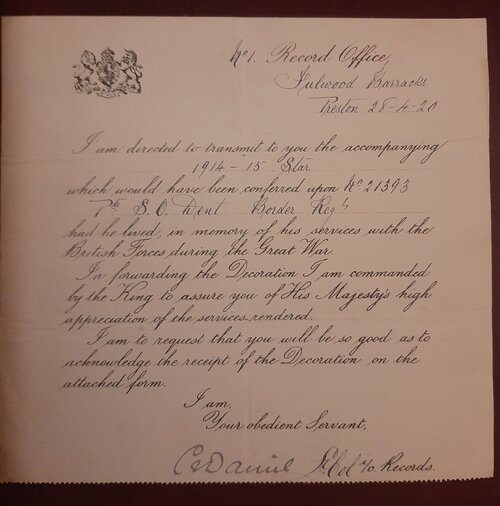 No 1. Record Office,
Fulwood Barracks
Preston 28-4-20
I am directed to transmit to you the accompanying
1914-15 Star
which would have been conferred upon No 21393
Pte S.O. Dent Border Regt
had he lived, in memory of his services with the
British Forces during the Great War.
In forwarding the Decoration I am commanded
by the King to assure you of His Majesty's high
appreciation of the services rendered.
I am to request that you will be so good as to
acknowledge the receipt of the Decoration on the
attached form.
I am,
Your obedient Servant,
Col i/c Records.